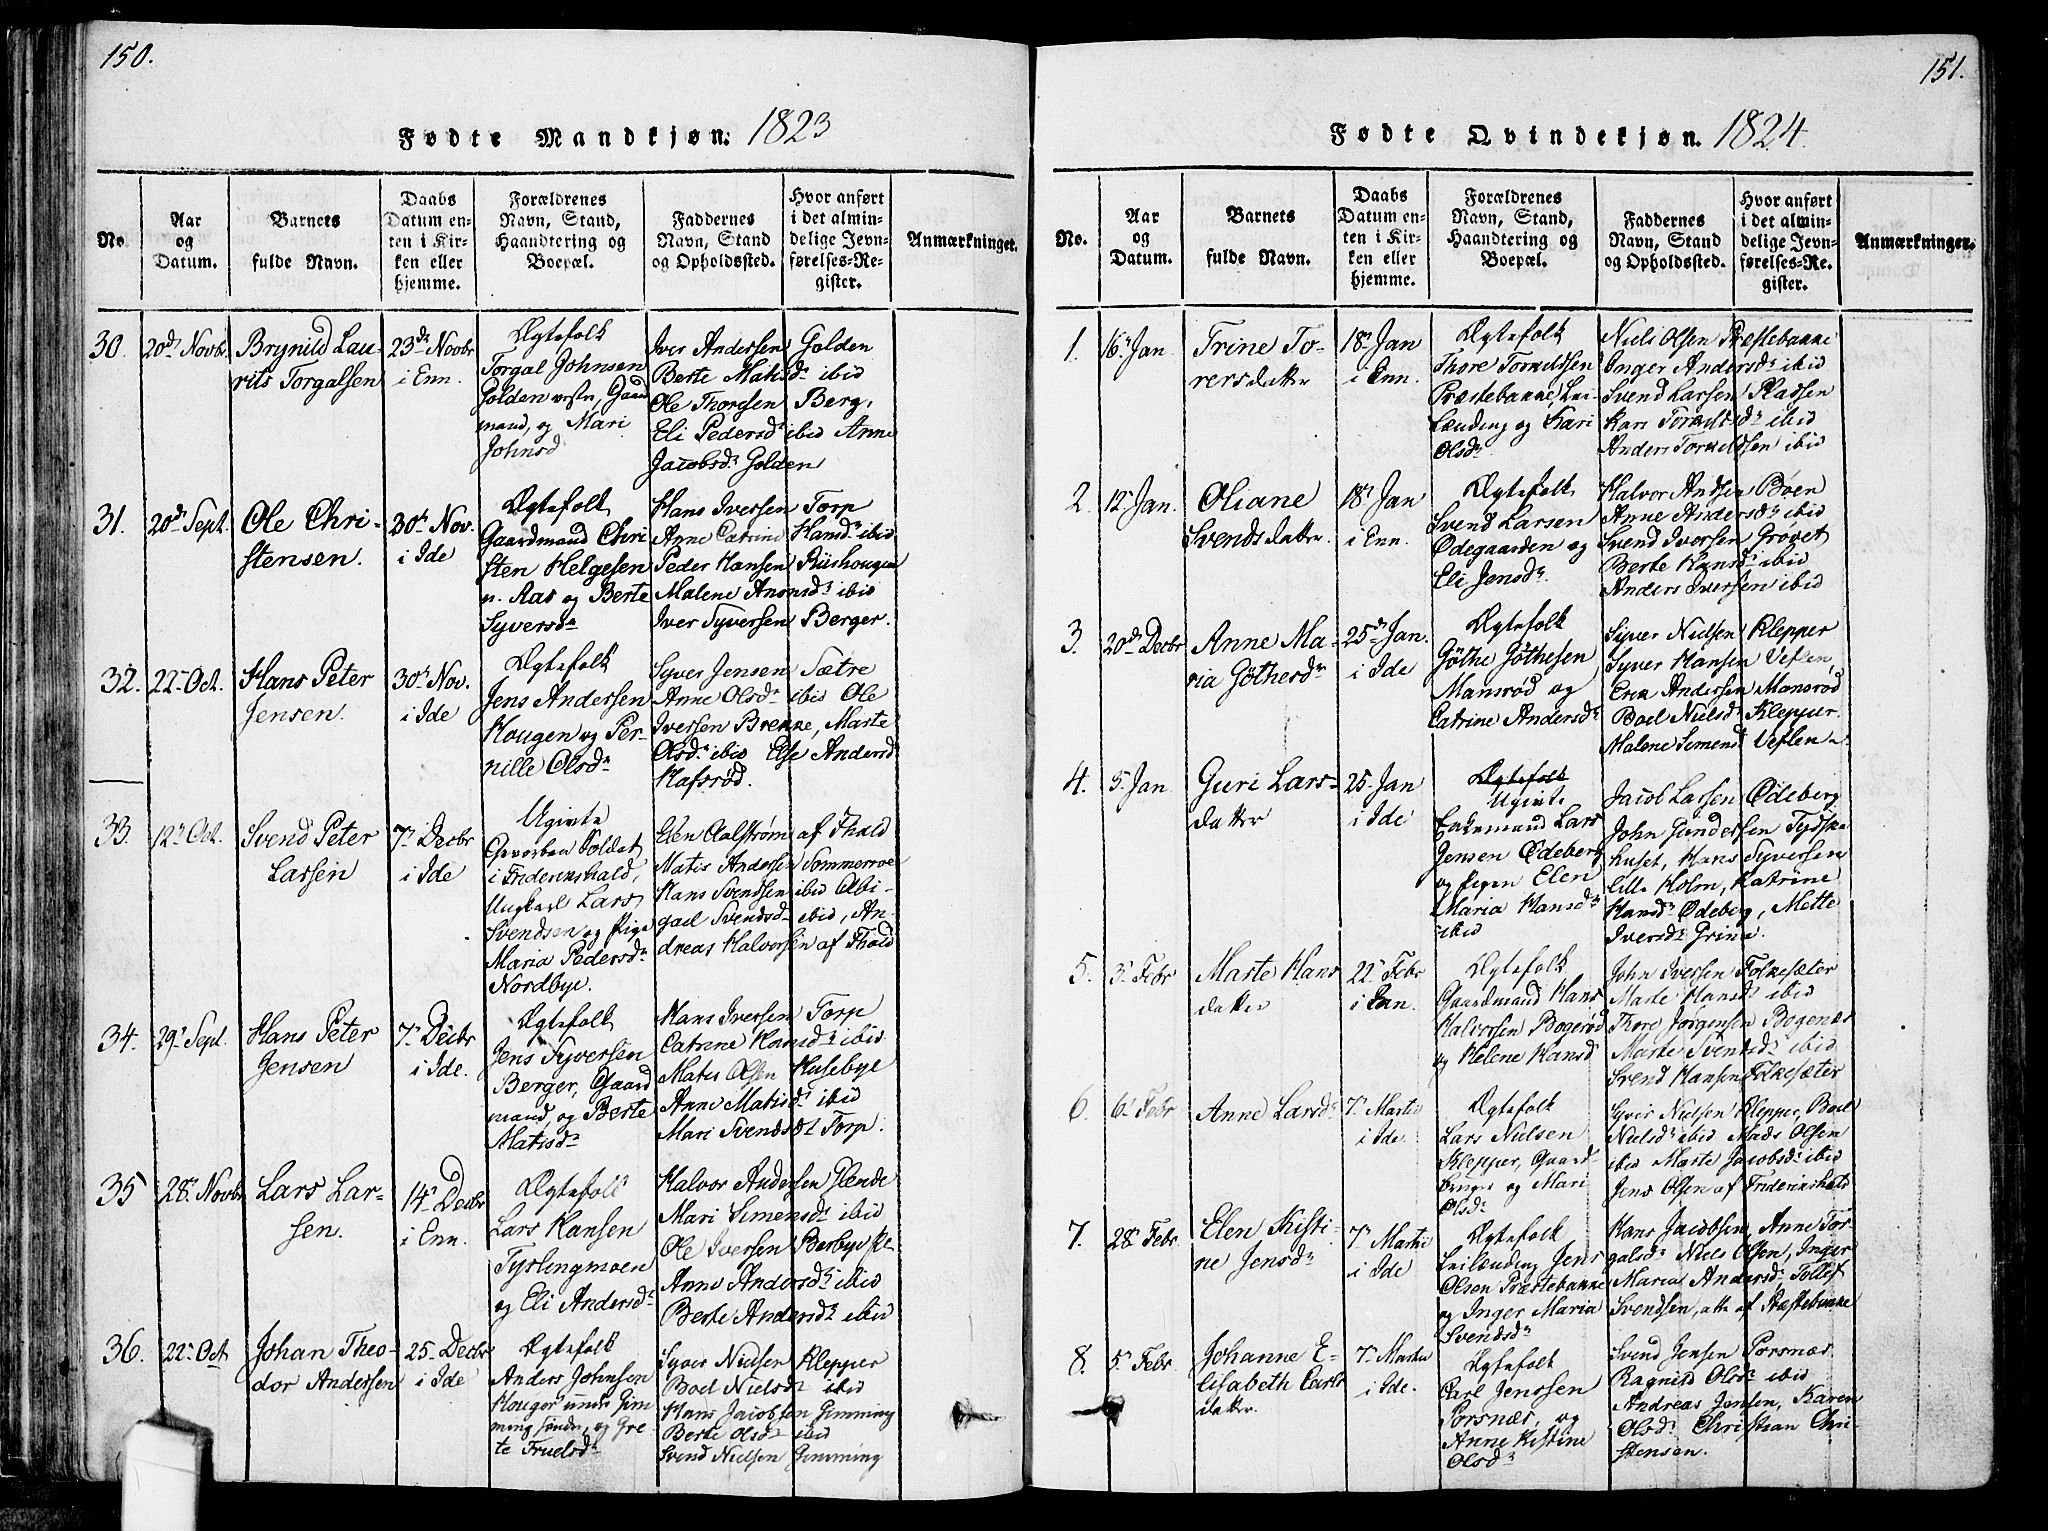 150.
Fødte Mandkjøn. 1823
No.
Aar
og
Datum.
Barnets
fulde Navn.
Daabs
Datum en-
ten i Kir-
ken eller
hjemme.
Forældrenes
Navn, Stand,
Haandtering og
Boepæl.
Faddernes
Navn, Stand
og Opholdssted.
Hvor anført
i det almin-
delige Jevn-
førelses-Re-
gister.
Anmærkninger.
30.
20de Novbr.
Brynild Lau-
rits Torgalsen
23de Novbr
i Enn.
Ægtefolk
Torgal Johnsen
Golden vestre, Gaard
mand, og Mari
Johnsd
Iver Andersen Golden
Berte Matisdr ibid
Ole Thoresen Berg,
Eli Pedersdr ibid Anne
Jacobsdr Golden
31.
20de Sept.
Ole Chri-
stensen.
30te Nov.
i Ide
Ægtefolk
Gaardmand Chri
sten Helgesen
n. Aas og Berte
Syversdr
Hans Iversen Torp
Anne Catrine Hansdr ibid
Peder Hansen Riishougen
Malene Amonsdr ibid
Iver Syversen Berger.
32.
22de Oct.
Hans Peter
Jensen.
30te Nov.
i Ide
Ægtefolk
Jens Andersen
Hougen og Per-
nille Olsdr
Syver Jensen Sætre
Anne Olsdr ibid Ole
Iversen Brekke, Marte
Olsdr ibid Else Andersd
Hafsrød.
33.
12te Oct.
Svend Peter
Larsen
7de Decbr
i Ide
Ugivte
Gevorben Soldat
i Friderikshald,
Ungkarl Lars
Svendsen og Pige
Maria Pedersdr
Nordbye.
Eden Aalstrøm af Fhald
Matis Andersen Sommerroe
Hans Svendsen ibid Abi-
gael Svendsdr ibid, An-
dreas Halvorsen af Fhald
34.
29de Sept.
Hans Peter
Jensen
7de Decbr
i Ide.
Ægtefolk
Jens Syversen
Berger, Gaard
mand, og Berte
Matisdr
Hans Iversen Torp
Catrine Hansdr ibid
Matis Olsen Husebye
Anne Matisdr ibid
Mari Svendsdr Torp.
35
28de Novbr
Lars Lar-
sen.
14de Decbr
i Enn.
Ægtefolk
Lars Hansen
Tyslingmoen
og Eli Andersdr
Halvor Andersen Glende
Mari Simensdr ibid
Ole Iversen Berbye
Anne Andersdr ibid
Berte Andersdr ibid
36.
22de Oct
Johan Theo-
dor Andersen
25de Decbr
i Ide
Ægtefolk
Anders Johnsen
Hougen under Gim
ming søndre, og Gre-
te Truelsdr
Syver Nielsen Klepper
Boel Nielsdr ibid
Hans Jacobsen Gimming
Berte Olsdr ibid
Svend Nielsen Gimming
151.
Fødte Qvindekjøn. 1824.
No.
Aar
og
Datum.
Barnets
fulde Navn.
Daabs
Datum en-
ten i Kir-
ken eller
hjemme.
Forældrenes
Navn, Stand,
Haandtering og
Boepæl.
Faddernes
Navn, Stand
og Opholdssted.
Hvor anført
i det almin-
delige Jevn-
førelses-Re-
gister.
Anmærkninger.
1.
16de Jan
Trine To-
rersdatter
18de Jan
i Enn.
Ægtefolk
Thore Torkildsen
Præstebakke, Lei-
Lænding og Kari
Olsdr
Niels Olsen Præstebakke
Inger Andersdr ibid
Svend Larsen Pladsen
Kari Torkildsdr ibid
Anders Torkildsen ibid
2.
12te Jan.
Oliane
Svendsdatter.
18de Jan
i Enn.
Ægtefolk
Svend Larsen
Ødegaarden og
Eli Jensdr
Halvor Andsen Bøen
Anne Andersdr ibid
Svend Iversen Grøvet
Berte Hansdr ibid
Anders Iversen ibid
3.
20de Decbr
Anne Ma-
ria Göthesdr
25de Jan.
i Ide
Ægtefolk
Göthe Göthesen
Mansrød og
Catrine Andersdr
Syver Nielsen Klepper
Syver Hansen Veflen
Erik Andersen Mansrød
Boel Nielsdr Klepper.
Malene Simensd Veflen
4.
5te Jan
Guri Lars-
datter
25de Jan
i Ide
Ægtefolk
Ugivte
Enkemand Lars
Jensen Ødeberg
og Pigen Elen
Maria Hansdr
ibid
Jacob Larsen Ødeberg
John Gundersen Tydske
huset, Hans Syversen
lille Holm, Katrine
Hansdr Ødeberg, Mette
Iversdr Grime.
5.
3de Febr
Marte Hans
datter
22de Febr
i Enn.
Ægtefolk
Gaardmand Hans
Halvorsen Bogerød
og Helene Hansd
John Iversen Folkesæter
Marte Hansdr ibid
Thore Jørgensen Bogenæs
Marte Svendsdr ibid
Svend Hansen Folkesæter
6.
6te Febr
Anne Larsdr
7de Martii
i Ide
Ægtefolk
Lars Nielsen
Klepper, Gaard-
bruger og Mari
Olsdr
Syver Nielsen Klepper, Boel
Nielsdr ibid Mads Olsen
ibid Marte Jacobsdr ibid
Jens Olsen af Friderikshald
7.
28de Febr.
Elen Kisti-
ne Jensdr
7de Martii
i Ide
Ægtefolk
Leilænding Jens
Olsen Præstebakke
og Inger Maria
Svendsdr
Hans Jacobsen, Anne Tor-
galsdr Niels Olsen, Inger
Maria Andersdr Tollef
Svendsen, alle af Præstebakke
8.
5te Febr.
Johanne E-
lisabeth Carls
datter.
7de Martii
i Ide.
Ægtefolk
Carl Jenssen
Porsnæs, og
Anne Kistine
Olsdr
Svend Jensen Porsnæs
Ragnild Olsdr ibid
Andreas Jensen, Karen
Olsdr Christian Chri-
stensen.